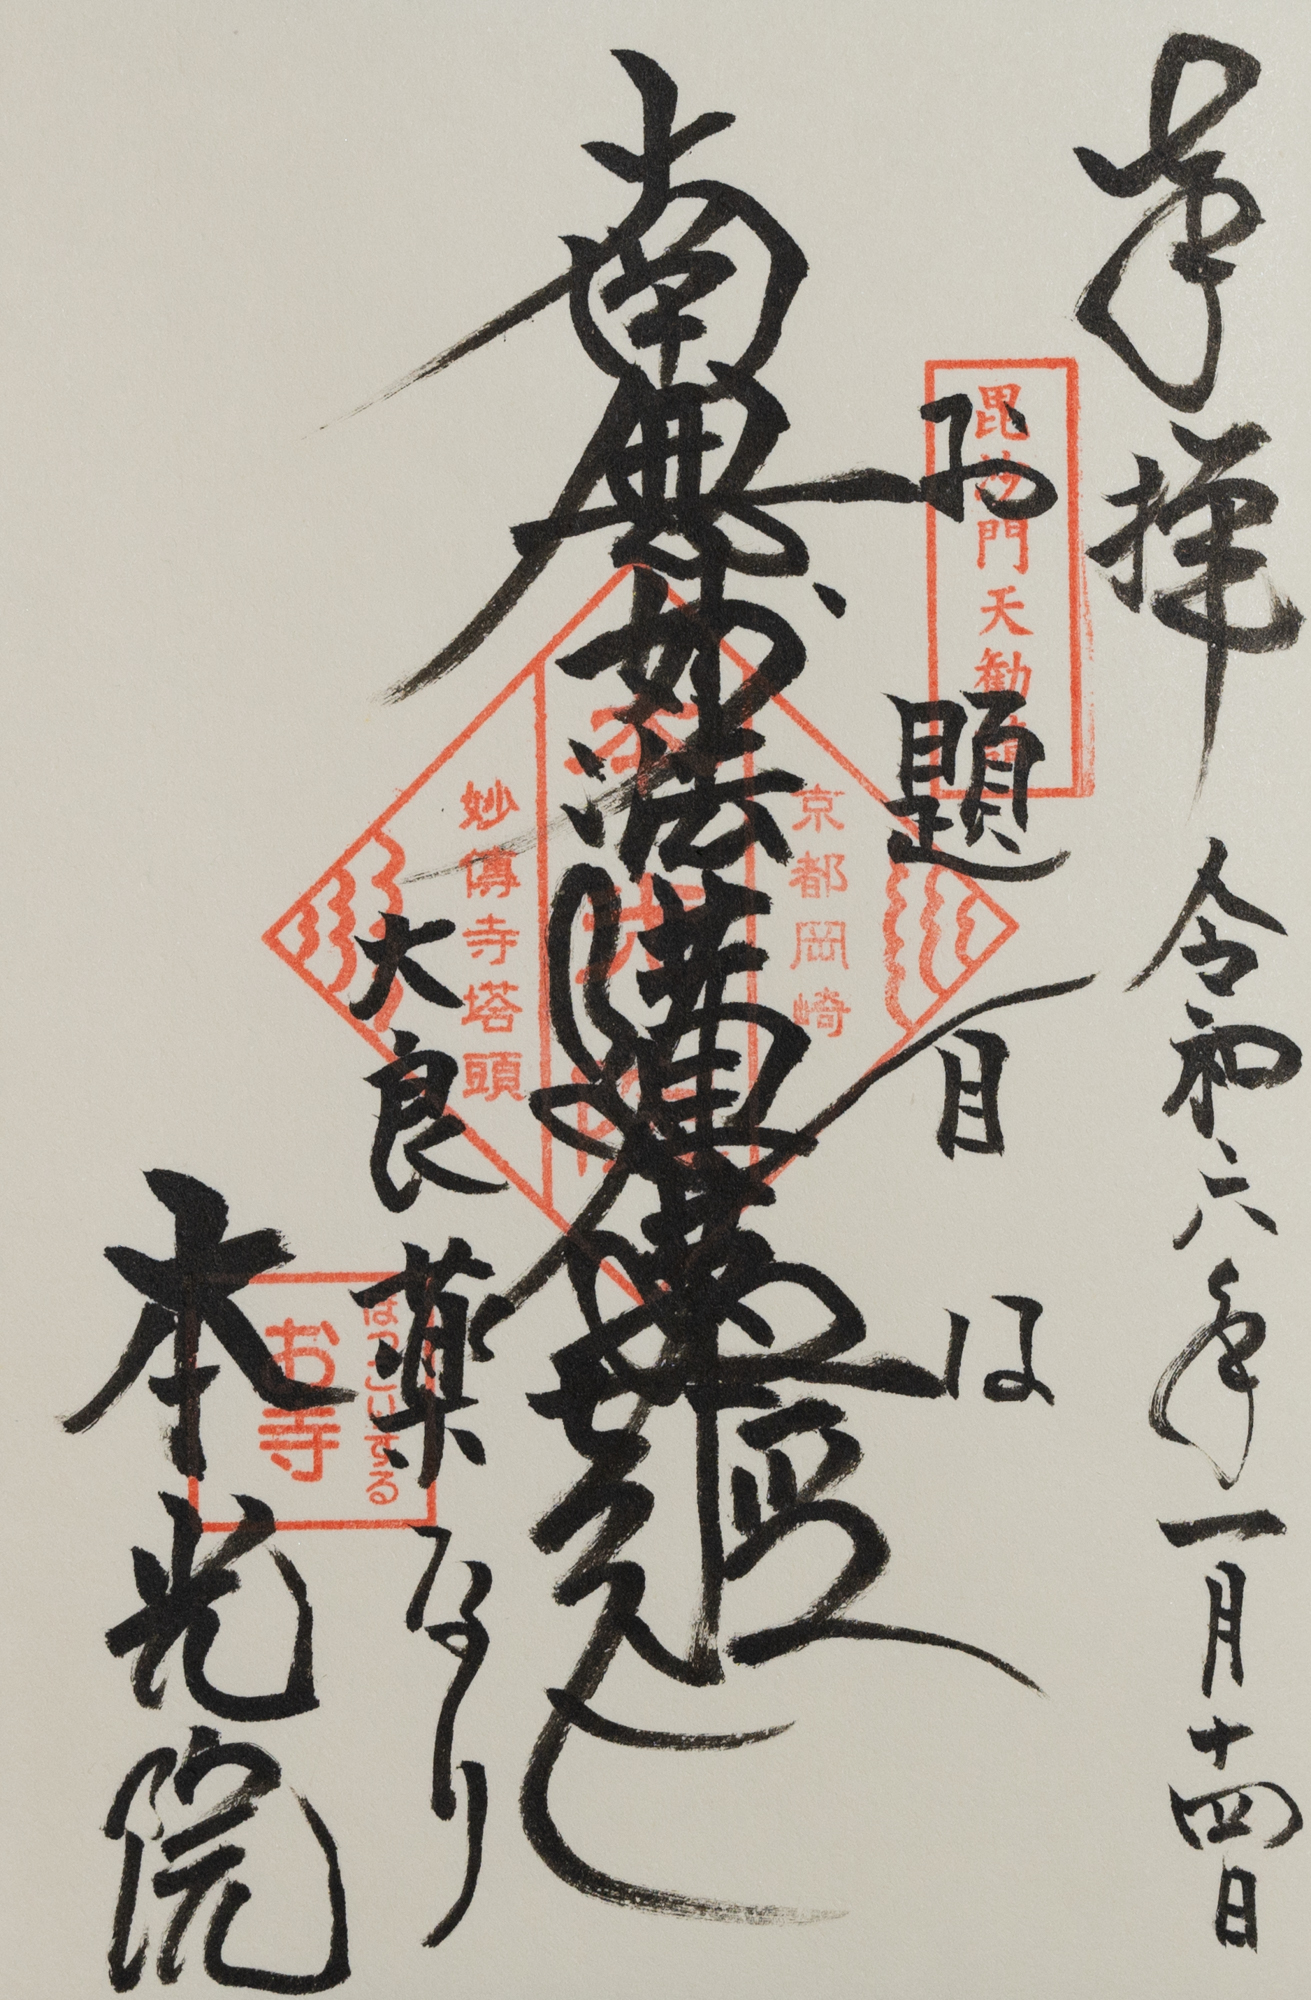 奉拝 令和六年一月十四日
お題目は
毘沙門天勧
京都岡崎
南無妙法蓮華経
妙傳寺塔頭
大良薬なり
お寺
本光院